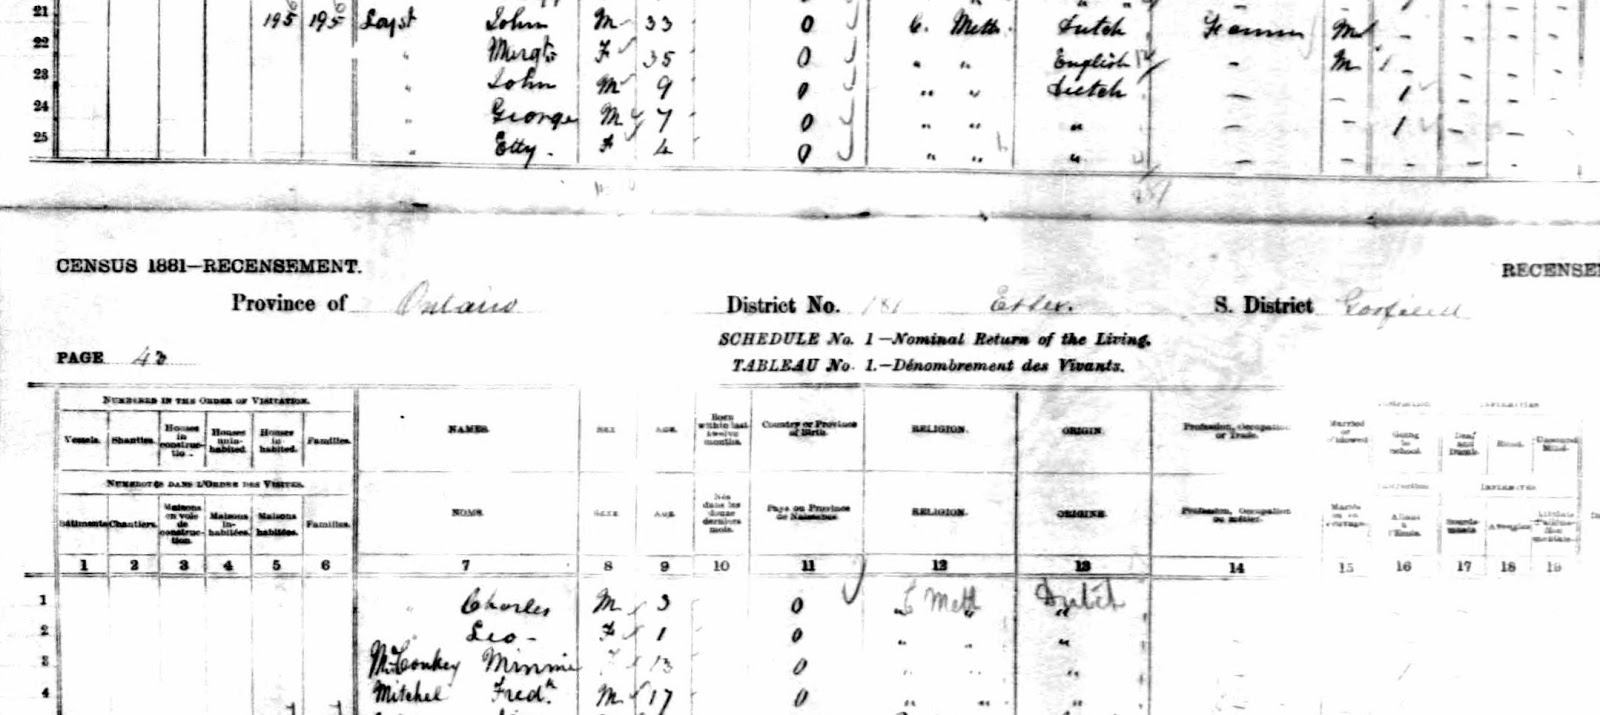 21 195 195 Loyst John M 33 0 C. Meth. Dutch Farmer M - - - -
22 " Margt F 35 0 " " English - M - - - -
23 " John M 9 0 " " Dutch - 1 - -
24 " George M 7 0 " " " - 1 - -
25 " Etty F 4 0 " " " - - - - -
CENSUS 1881—RECENSEMENT. RECENSE
Province of Ontario District No. 181 Essex. S. District Gosfield
SCHEDULE No. 1—Nominal Return of the Living.
PAGE TABLEAU No. 1.—Dénombrement des Vivants.
NUMBERED IN THE ORDER OF VISITATION.
Vessels. Shanties. Houses in construction. Houses uninhabited. Houses inhabited. Families. NAMES. SEX AGE. Born within last twelve months. Country or Province of Birth. RELIGION. ORIGIN. Profession, Occupation or Trade. Married or Widowed Going to school. Deaf and Dumb. Blind. Unsound Mind.
NUMÉROTÉS DANS L'ORDRE DES VISITES.
Bâtiments Chantiers. Maisons en voie de construction. Maisons inhabitées. Maisons habitées. Families. NOMS. SEXE AGE. Nés dans les douze derniers mois. Pays ou Province de Naissance. RELIGION. ORIGINE. Profession, Occupation ou métier.
1 2 3 4 5 6 7 8 9 10 11 12 13 14 15 16 17 18 19
1 " Charles M 3 0 C Meth Dutch
2 " Leo - F 1 0 " " "
3 McConkey Minnie F 13 0 " " "
4 Mitchel Fredk. M 17 0 " " "